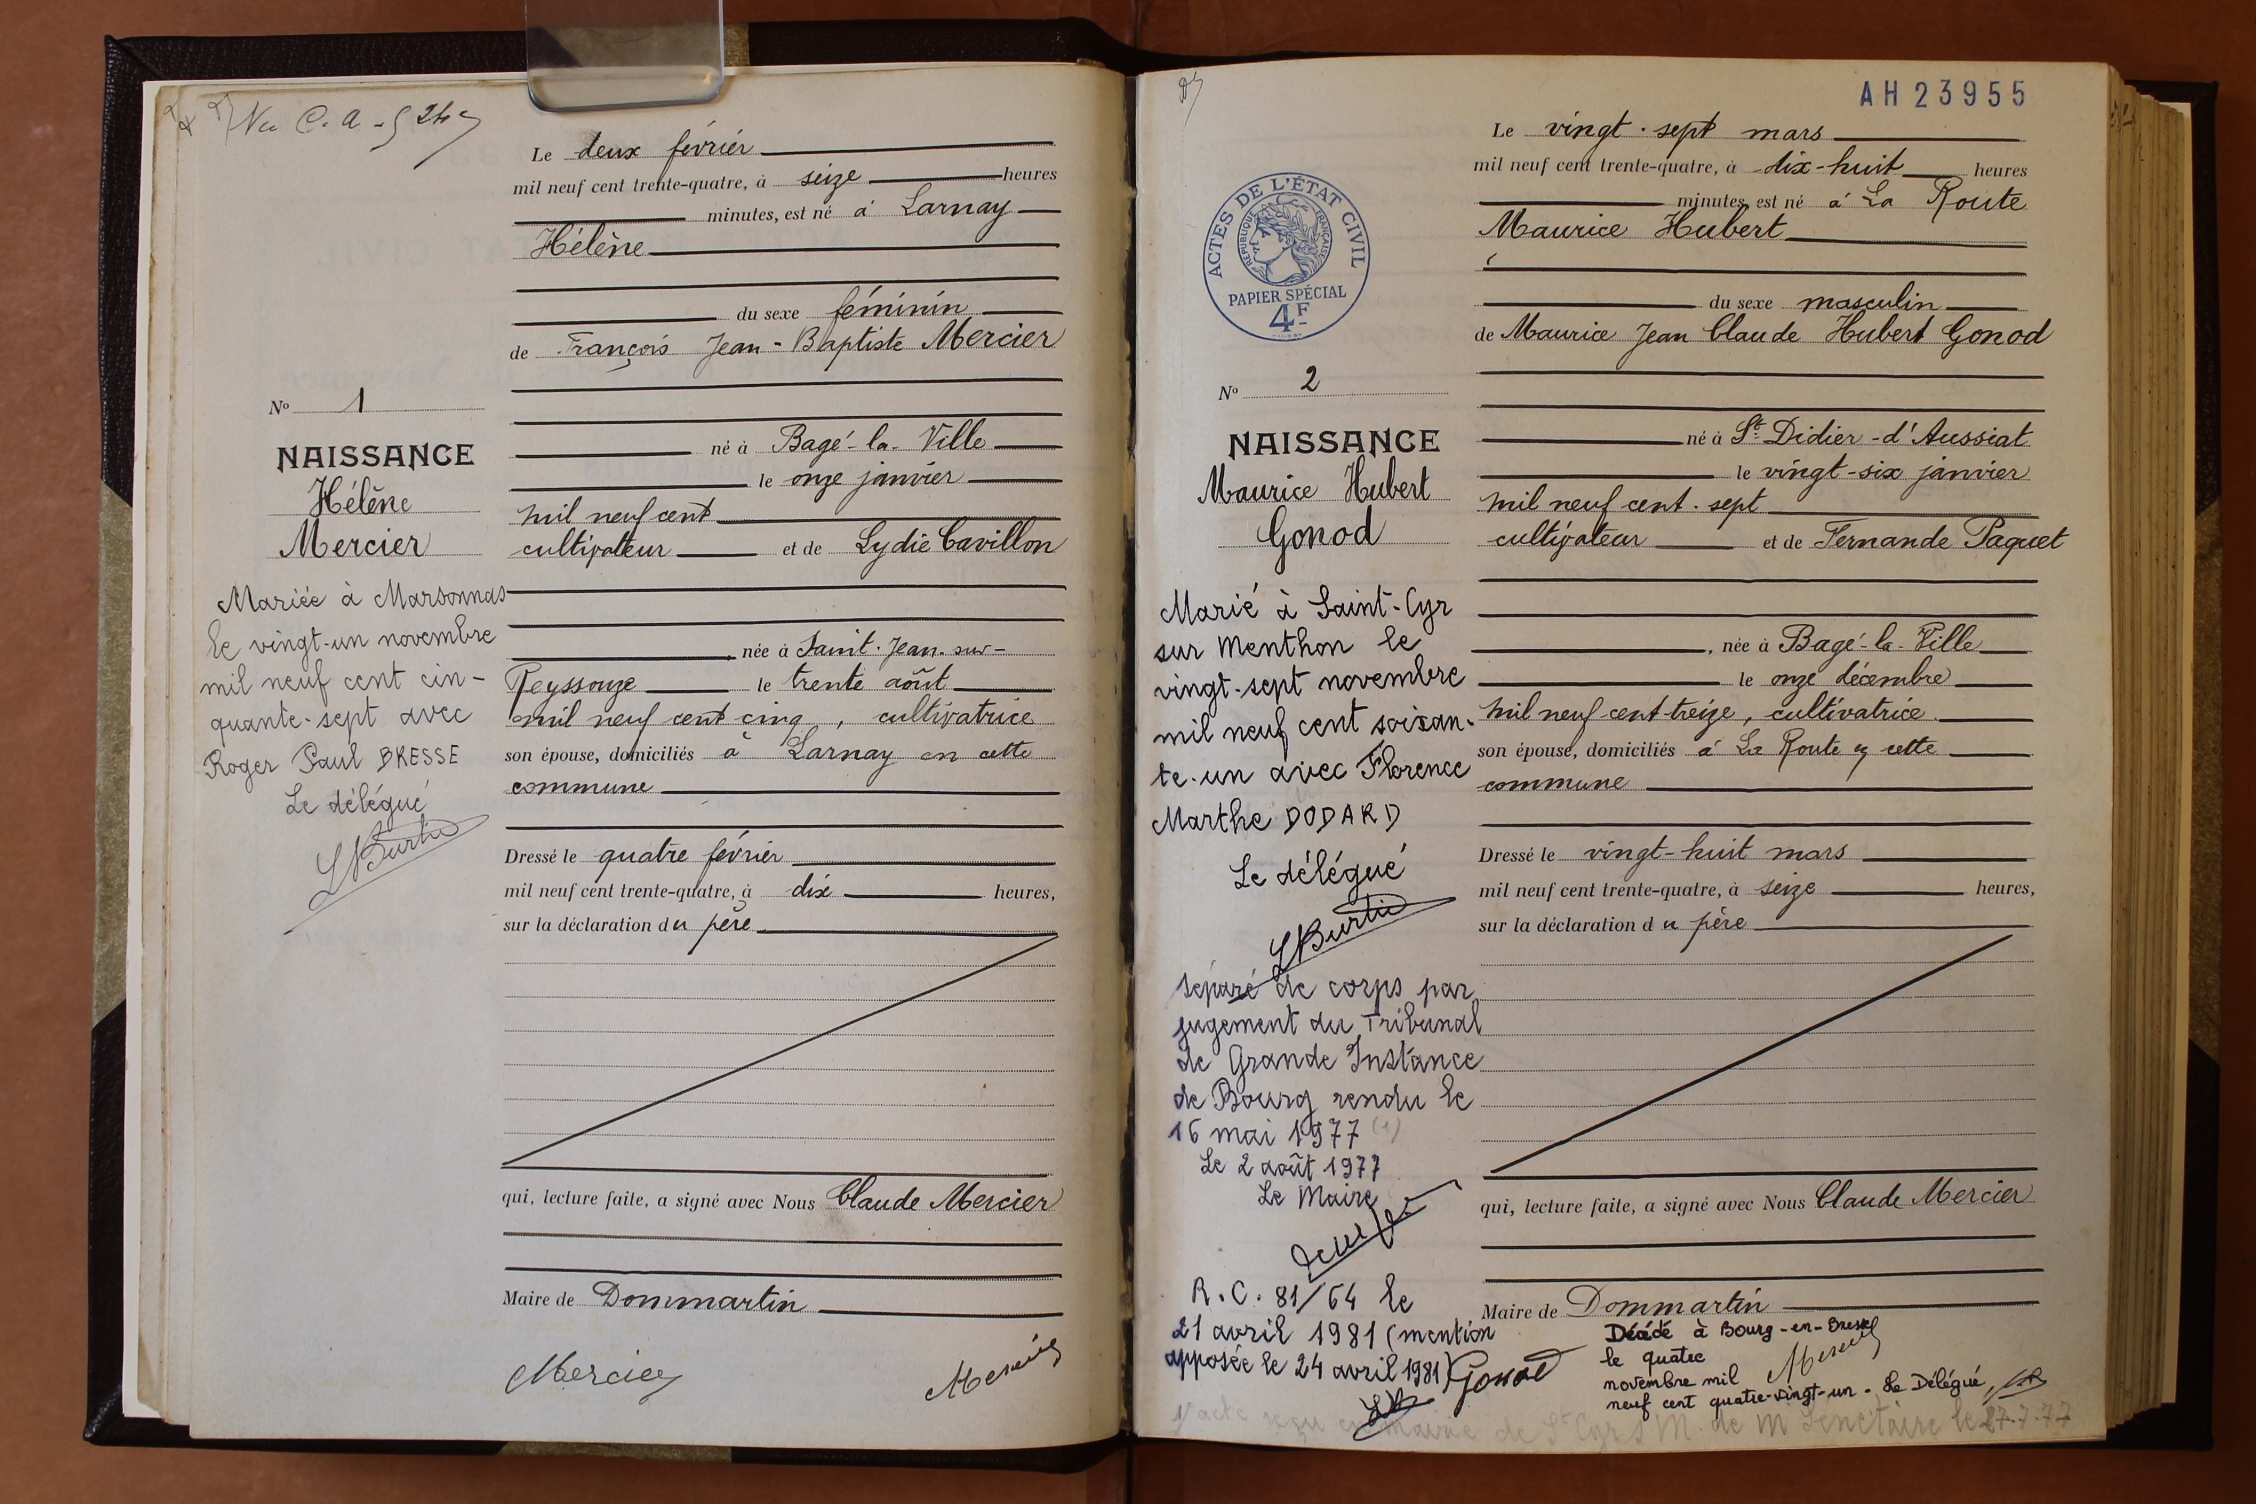 Vu C. a - § 24
Le deux février
mil neuf cent trente-quatre, à seize heures
minutes, est né à Larnay
Hélène
du sexe féminin
de François Jean-Baptiste Mercier
né à Bagé-la-Ville
le onze janvier
mil neuf cent
cultivateur et de Lydie Cavillon
, née à Saint-Jean-sur-
Reyssouze le trente août
mil neuf cent cinq, cultivatrice
son épouse, domiciliés à Larnay en cette
commune
Dressé le quatre février
mil neuf cent trente-quatre, à dix heures,
sur la déclaration du père
qui, lecture faite, a signé avec Nous Claude Mercier
Maire de Dommartin
Mercier
Mercier
No 1
NAISSANCE
Hélène
Mercier
Mariée à Marsonnas
le vingt-un novembre
mil neuf cent cin-
quante-sept avec
Roger Paul BRESSE
Le délégué
AH 23955
Le vingt-sept mars
mil neuf cent trente-quatre, à dix-huit heures
minutes, est né à La Route
Maurice Hubert
du sexe masculin
de Maurice Jean Claude Hubert Gonod
né à St Didier-d'Aussiat
le vingt-six janvier
mil neuf cent sept
cultivateur et de Fernande Paquet
, née à Bagé-la-Ville
le onze décembre
mil neuf cent treize, cultivatrice
son épouse, domiciliés à La Route en cette
commune
Dressé le vingt-huit mars
mil neuf cent trente-quatre, à seize heures,
sur la déclaration du père
qui, lecture faite, a signé avec Nous Claude Mercier
Maire de Dommartin
ACTES DE L'ÉTAT CIVIL
RÉPUBLIQUE FRANÇAISE
PAPIER SPÉCIAL
4F
No 2
NAISSANCE
Maurice Hubert
Gonod
Marié à Saint-Cyr
sur Menthon le
vingt-sept novembre
mil neuf cent soixan-
te-un avec Florence
Marthe DODARD
Le délégué
séparé de corps par
jugement du Tribunal
de Grande Instance
de Bourg rendu le
16 mai 1977 (1)
Le 2 août 1977
Le Maire
R.C. 81/64 le
21 avril 1981 (mention
apposée le 24 avril 1981)
Gonod
Mercier
Décédé à Bourg-en-Bresse
le quatre
novembre mil
neuf cent quatre-vingt-un. Le Délégué,
1/ acte reçu en mairie de St Cyr s M. de M Sénétaire le 27.7.77